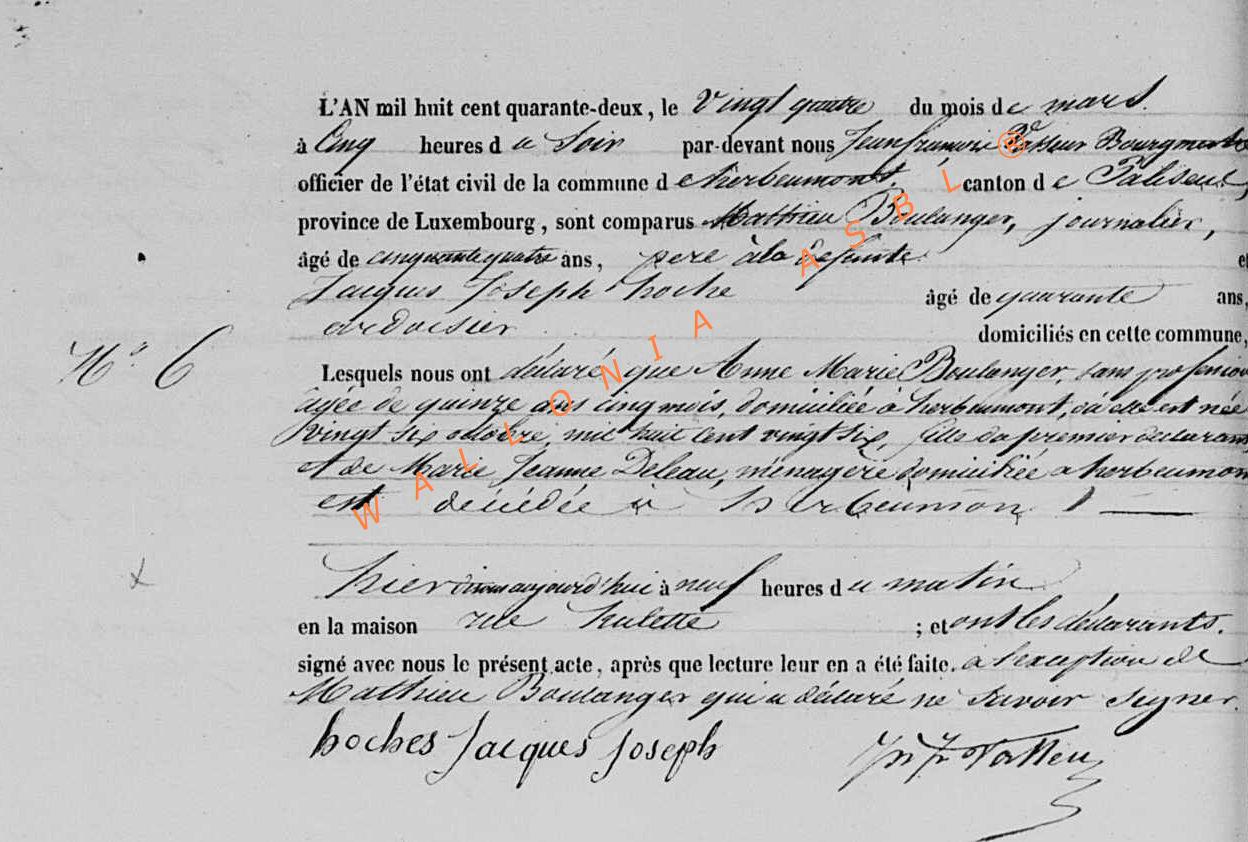 L'AN mil huit cent quarante-deux, le Vingt quatre du mois de mars.
à Cinq heures du Soir par-devant nous Jean françois Bourgmestre
officier de l'état civil de la commune de herbeumont. canton de Paliseul,
province de Luxembourg, sont comparus Mathieu Boulanger, journalier,
âgé de cinquante quatre ans, pere à la défunte et
Jacques Joseph hoche âgé de quarante ans,
ardoisier domiciliés en cette commune,
N.o 6
Lesquels nous ont déclaré que Anne Marie Boulanger, sans profession
agée de quinze ans cinq mois, domiciliée à herbeumont, où elle est née
vingt six octobre, mil huit cent vingt six, fille du premier déclarant
et de Marie Jeanne Deleau, ménagère domiciliée a herbeumon
est décédée à herbeumont
hier aujourd'hui à neuf heures du matin
en la maison rue hulette ; et ont les déclarants.
signé avec nous le présent acte, après que lecture leur en a été faite. a l'exception de
Mathieu Boulanger qui a déclaré ne Savoir Signer.
hoches Jacques Joseph
WALLONIA ASBL ®